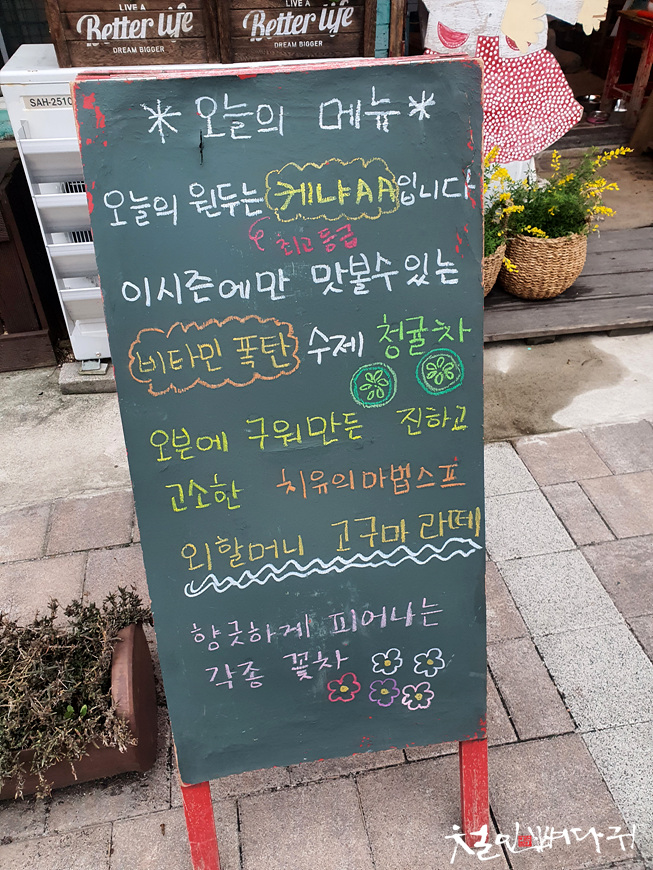 LIVE A
Better life
DREAM BIGGER
LIVE A
Better life
DREAM BIGGER
SAH-2510
오늘의 메뉴
오늘의 원두는 케냐AA입니다
최고등급
이시즌에만 맛볼수있는
비타민 폭탄 수제 청귤차
오븐에 구워만든 진하고
고소한 치유의마법스프
외할머니 고구마라떼
향긋하게 피어나는
각종 꽃차
철인뼈다귀